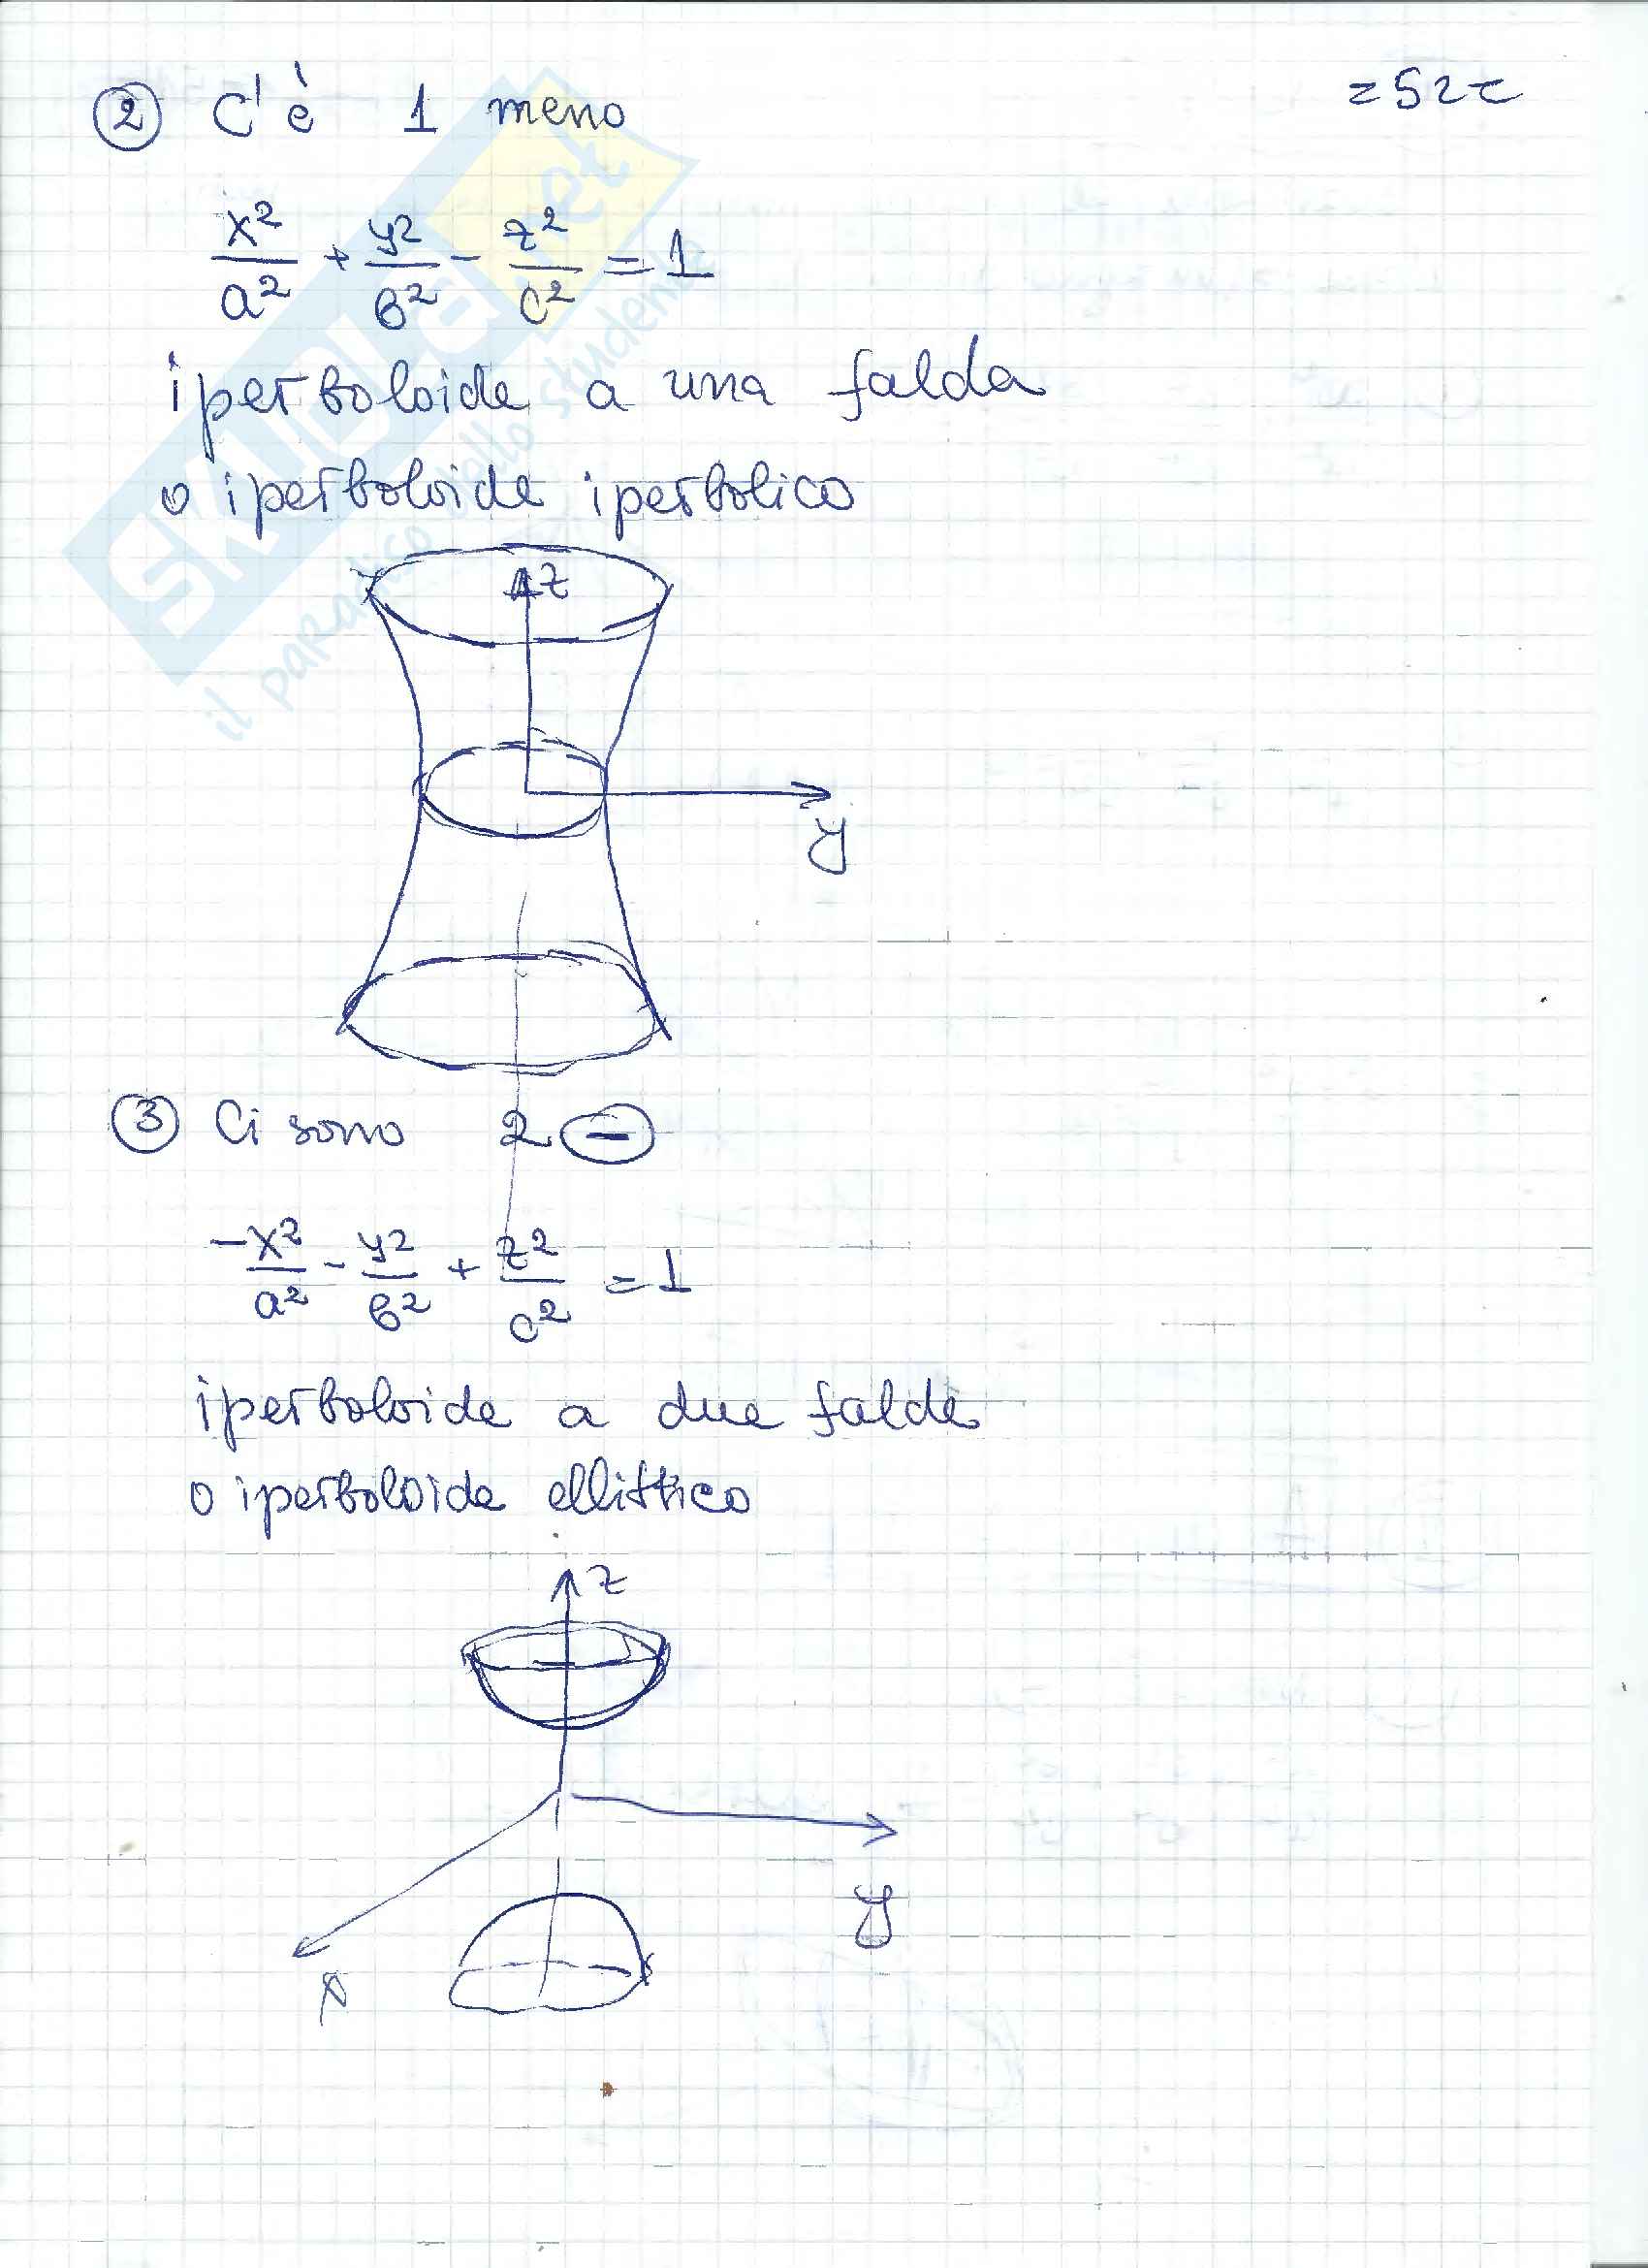 =52=
② C'è 1 meno
x²/a² + y²/b² - z²/c² = 1
iperboloide a una falda
o iperboloide iperbolico
z
y
③ Ci sono 2 ⊖
-x²/a² - y²/b² + z²/c² = 1
iperboloide a due falde
o iperboloide ellittico
z
y
x
SKUOLA.net
il paradiso dello studente